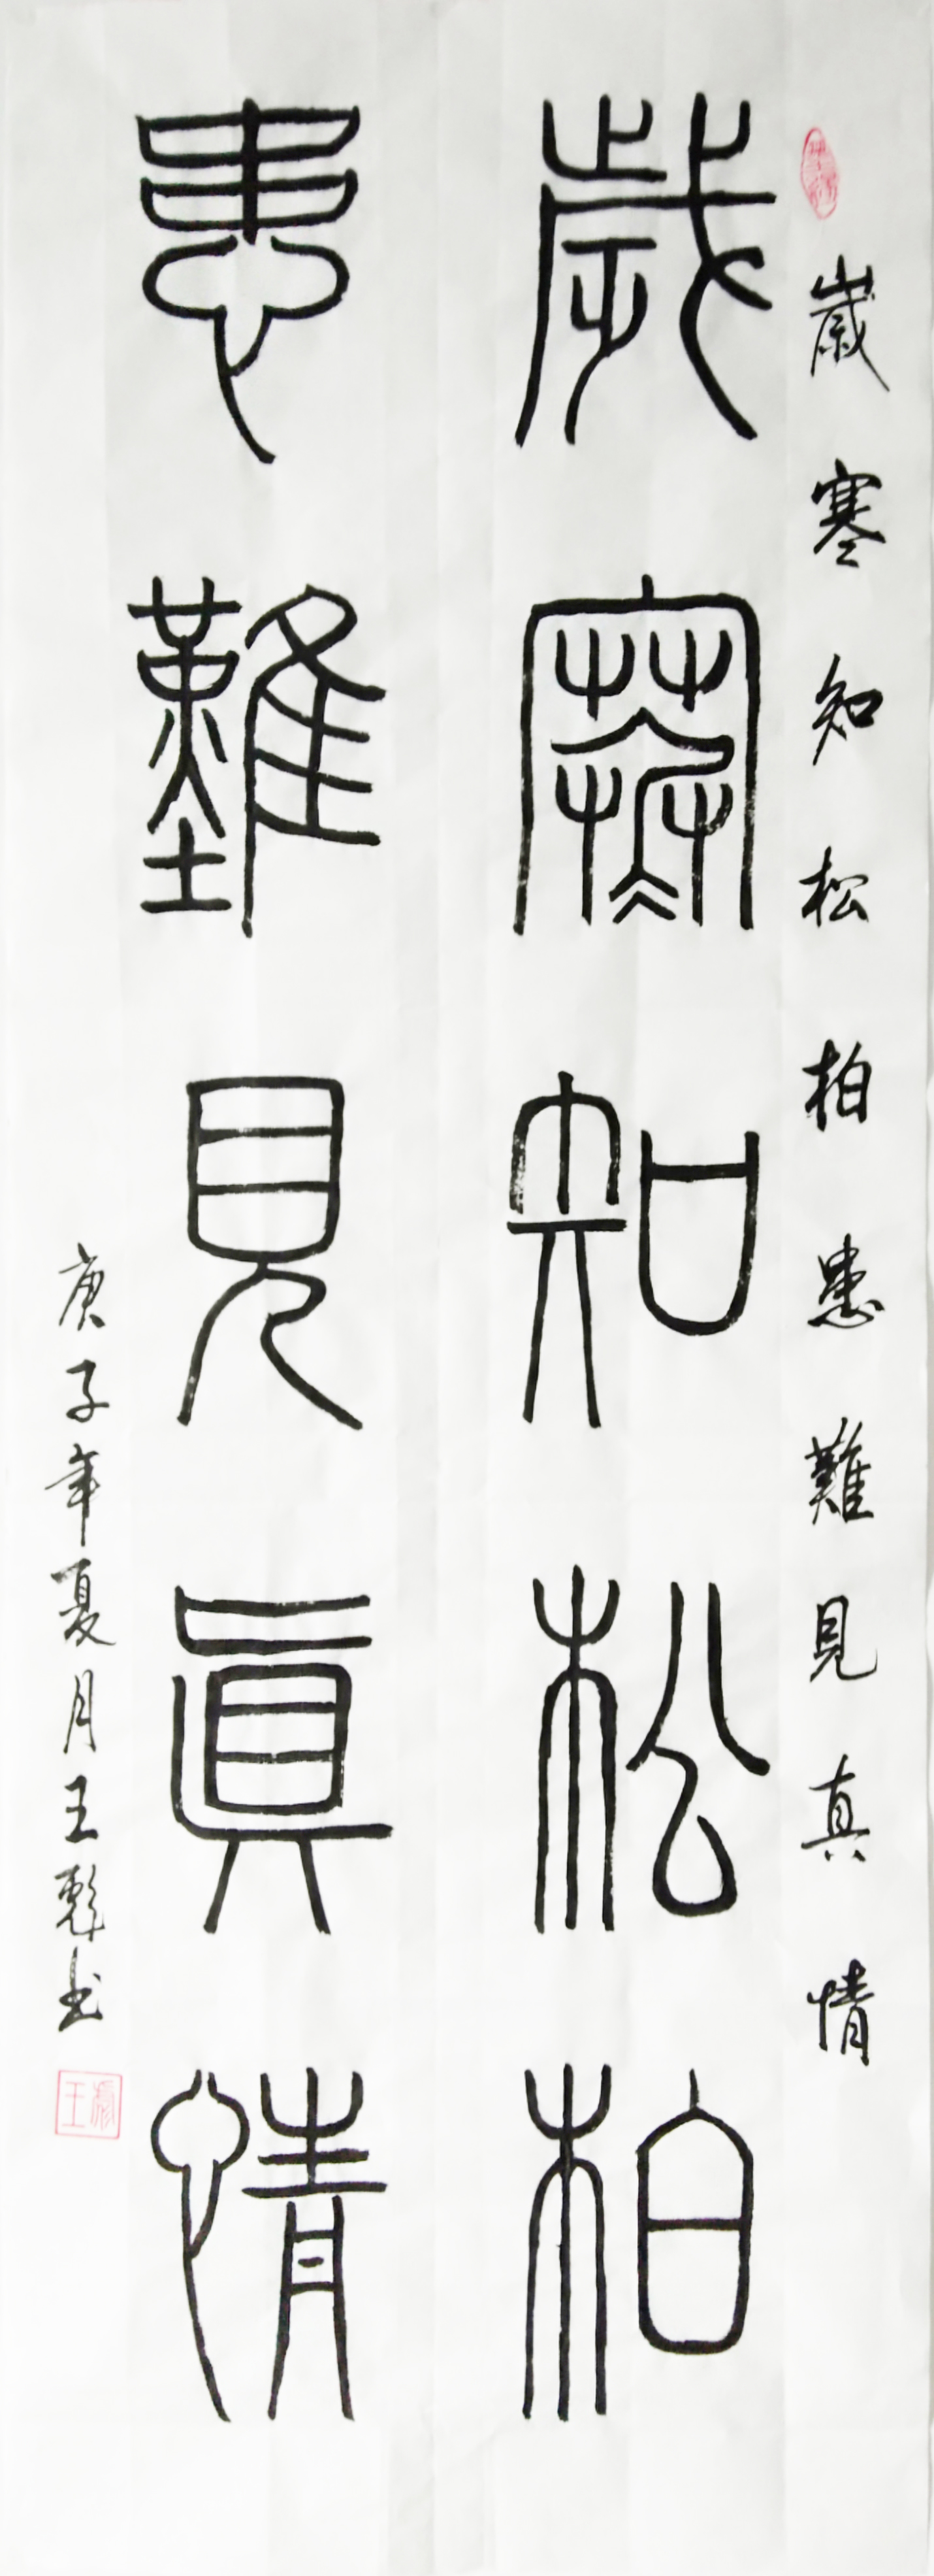 歲寒知松柏患難見真情
歲寒知松柏
患難見眞情
庚子年夏月王彪书